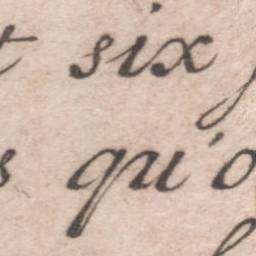 t six
s qu'o